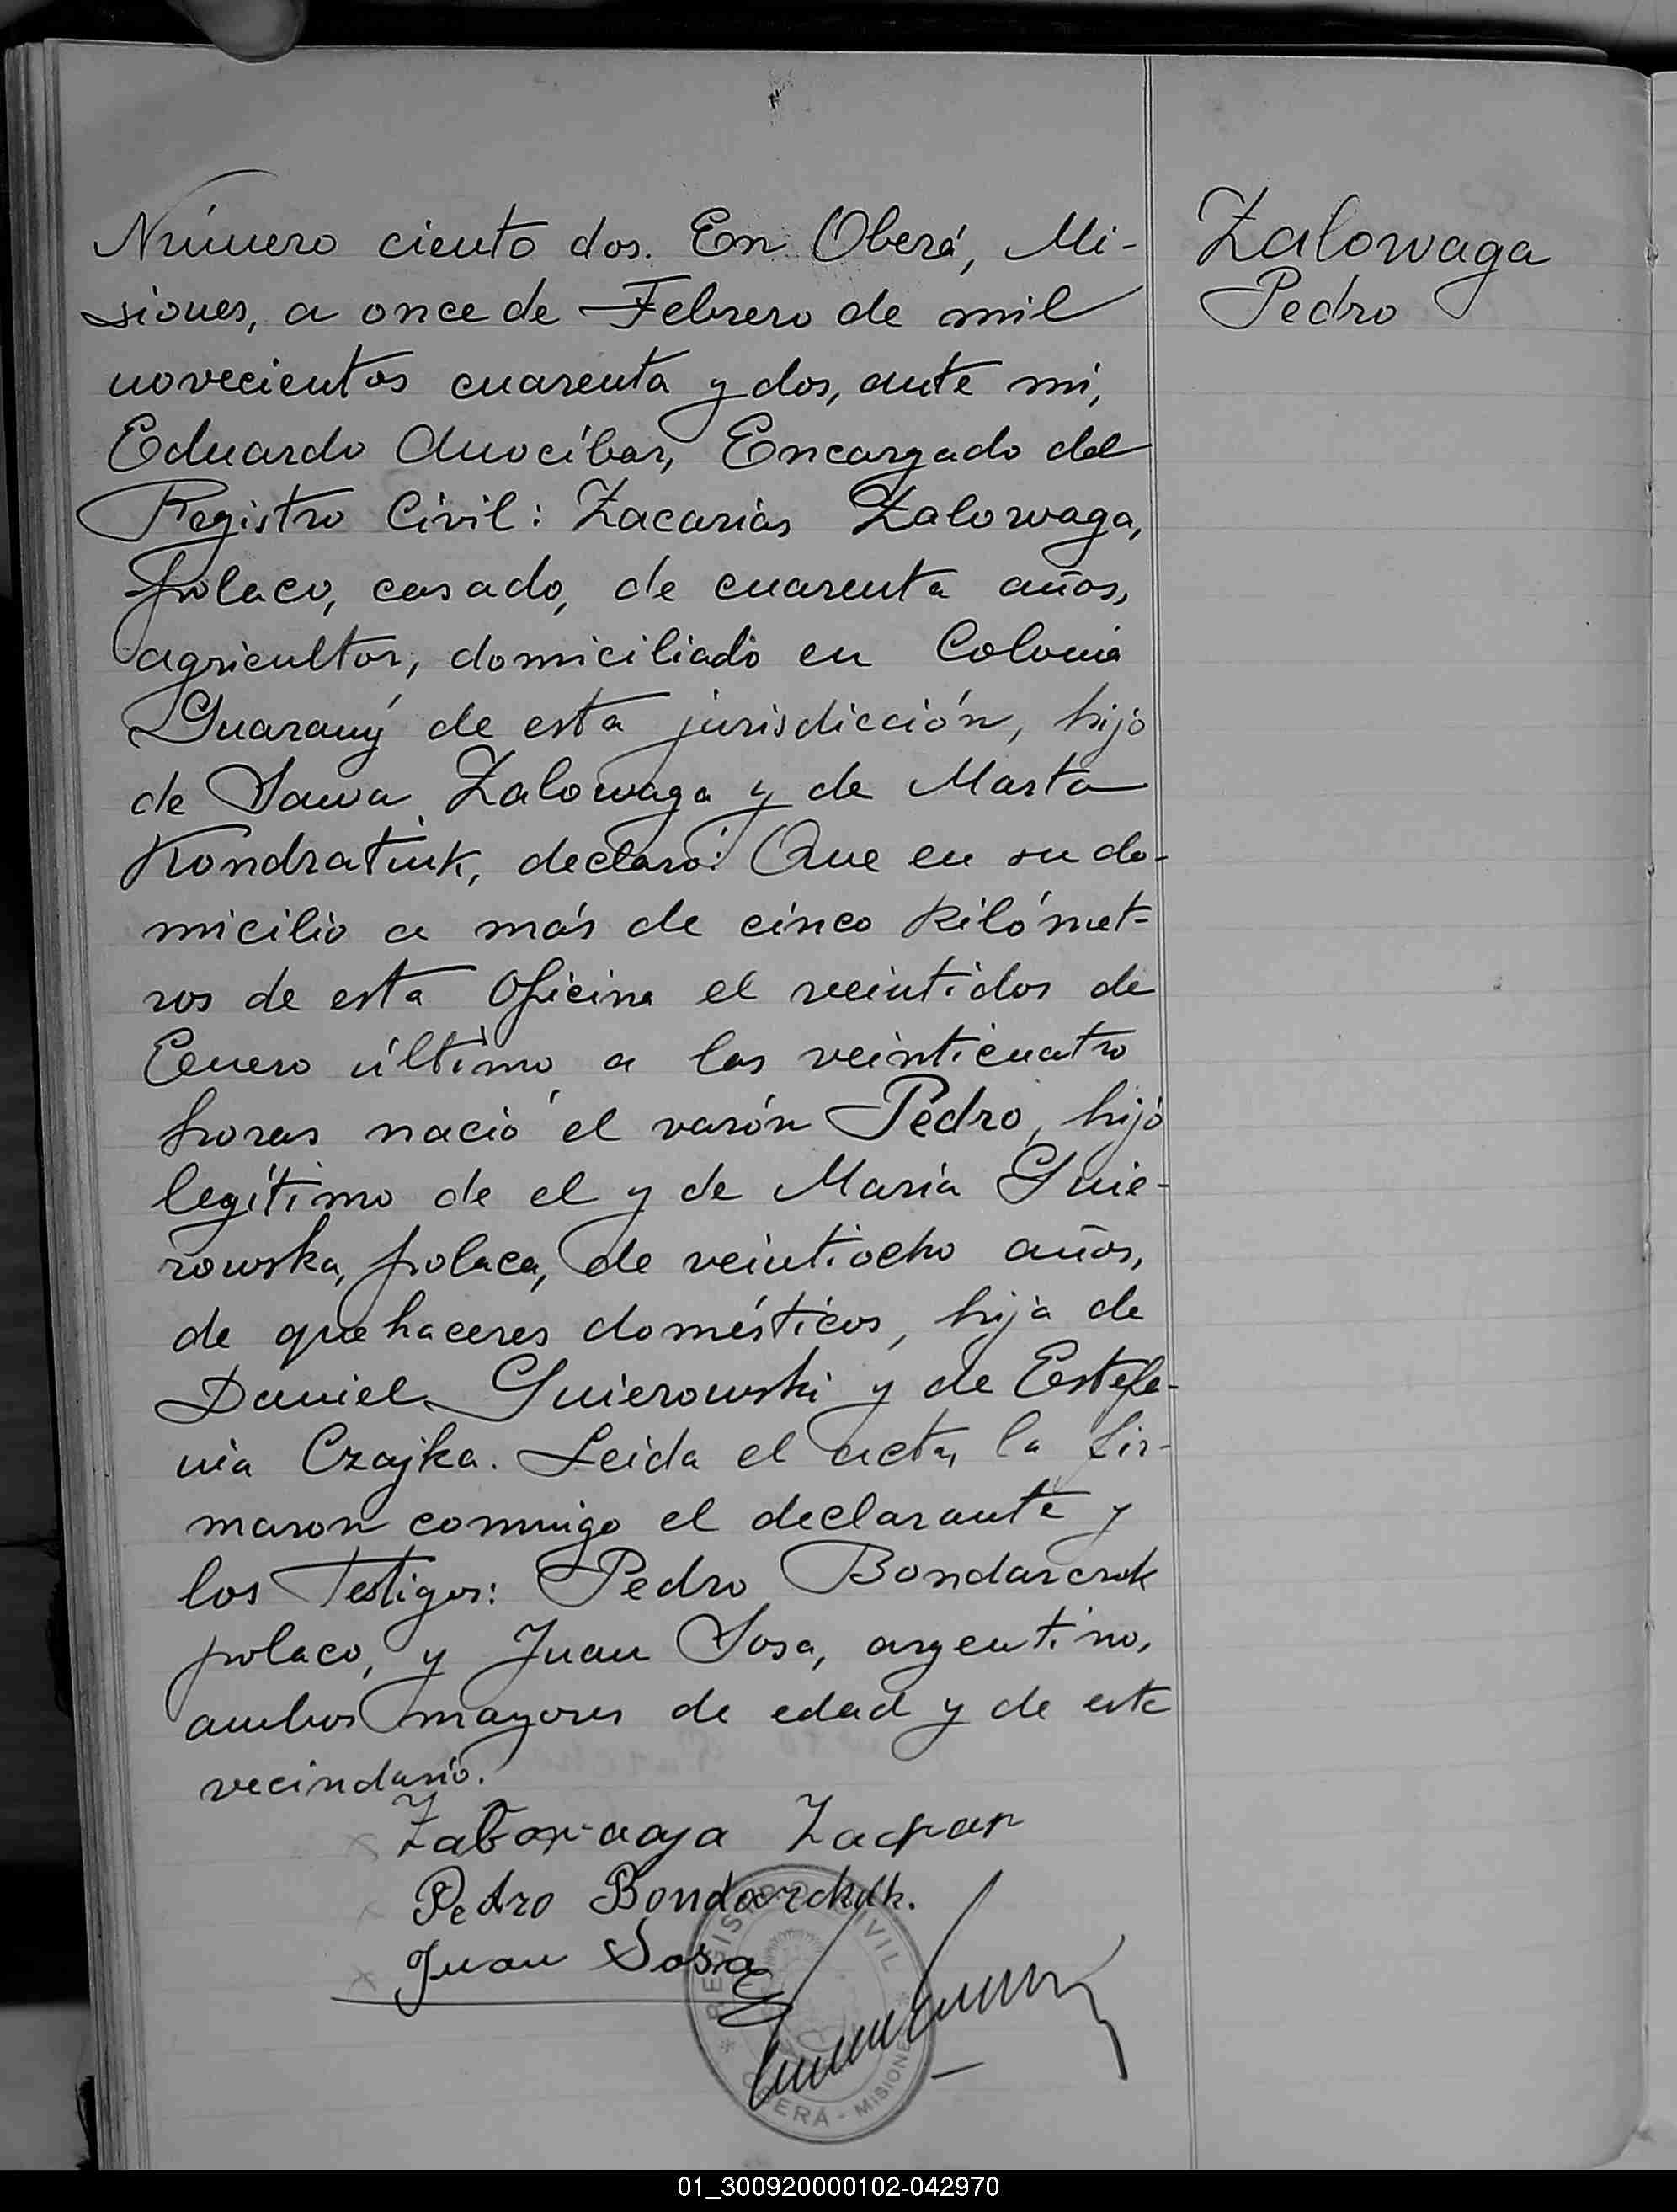 Número ciento dos. En Oberá, Mi-
siones, a once de Febrero de mil
novecientos cuarenta y dos, ante mi,
Eduardo Anocíbar, Encargado del
Registro Civil: Zacarias Zalowaga,
polaco, casado, de cuarenta años,
agricultor, domiciliado en Colonia
Guarany de esta jurisdicción, hijo
de Sawa Zalowaga y de Marta
Kondratiuk, declaró: Que en su do-
micilio a más de cinco kilómet-
ros de esta Oficina el veintidos de
Enero último a las veinticuatro
horas nació el varón Pedro, hijo
legítimo de el y de María Gnie-
rowska, polaca, de veintiocho años,
de quehaceres domésticos, hija de
Daniel Gnierowski y de Estefa-
nia Czajka. Leida el acta, la fir-
maron conmigo el declarante y
los Testigos: Pedro Bondarczok
polaco, y Juan Sosa, argentino,
ambos mayores de edad y de este
vecindario.
Zalowaga
Pedro
Pedro
Juan Sosa
REGISTRO CIVIL
OBERÁ - MISIONES
01_300920000102-042970